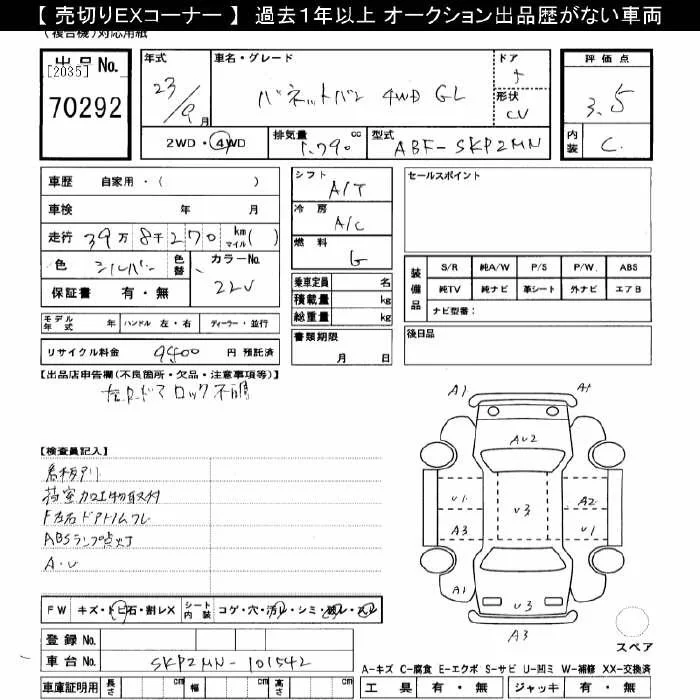 【 売切りEXコーナー 】 過去1年以上 オークション出品歴がない車両
(複合機)対応用紙
出品No.
[2035]
70292
年式 23/9月
車名・グレード バネットバン 4WD GL
ドア 5
形状 CV
2WD・4WD
排気量 1,790 cc
型式 ABF-SKP2MN
評価点 3.5
内装 C
車歴 自家用・( )
車検 年 月
走行 39万8千270 km マイル( )
色 シルバー 色替 カラーNo. 22V
保証書 有・無
モデル年式 年 ハンドル 左・右 ディーラー・並行
リサイクル料金 9400 円 預託済
シフト A/T
冷房 A/C
燃料 G
乗車定員 名
積載量 kg
総重量 kg
書類期限
月 日
セールスポイント
装備品
S/R 純A/W P/S P/W. ABS
純TV 純ナビ 革シート 外ナビ エアB
ナビ型番：
後日品
【出品店申告欄(不良箇所・欠品・注意事項等)】
ドア ロック不調
【検査員記入】
看板アリ
荷室加工物取付
F左右ドアトリムフレ
ABSランプ点灯
A・U
A1 A1
AU2
U1 A2
U3
A3 U1
A1
U3
A3
スペア
FW キズ・トビ石・割レX シート内装 コゲ・穴・汚レ・シミ・破レ・スレ
登録No.
車台No. SKP2MN-101542
車庫証明用 長さ cm 幅 cm 高さ cm
A-キズ C-腐食 E-エクボ S-サビ U-凹ミ W-補修 XX-交換済
工具 有・無 ジャッキ 有・無